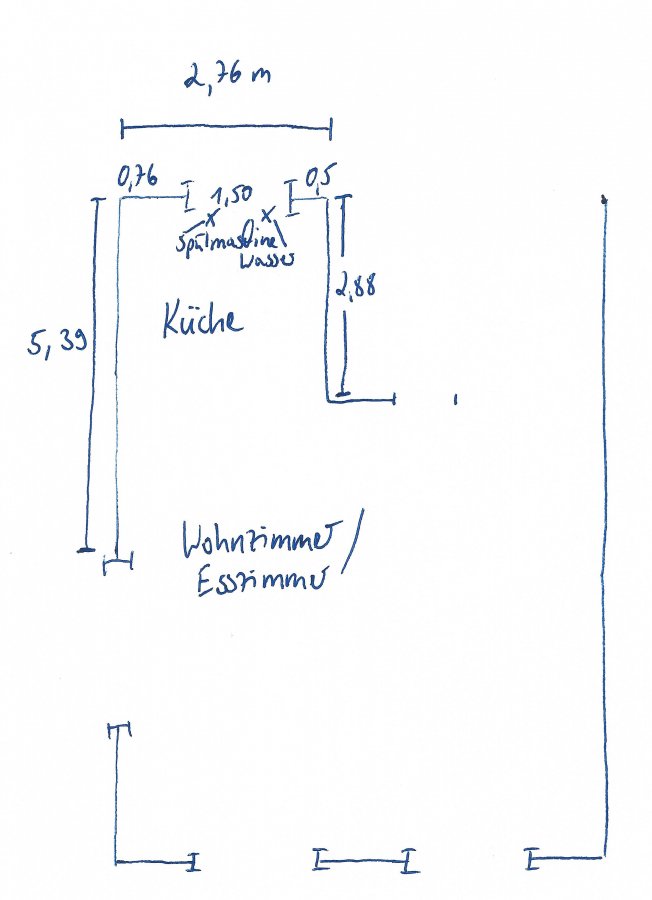 2,76 m
0,76
1,50
0,5
Spülmaschine
Wasser
2,88
Küche
5,39
Wohnzimmer/
Esszimmer